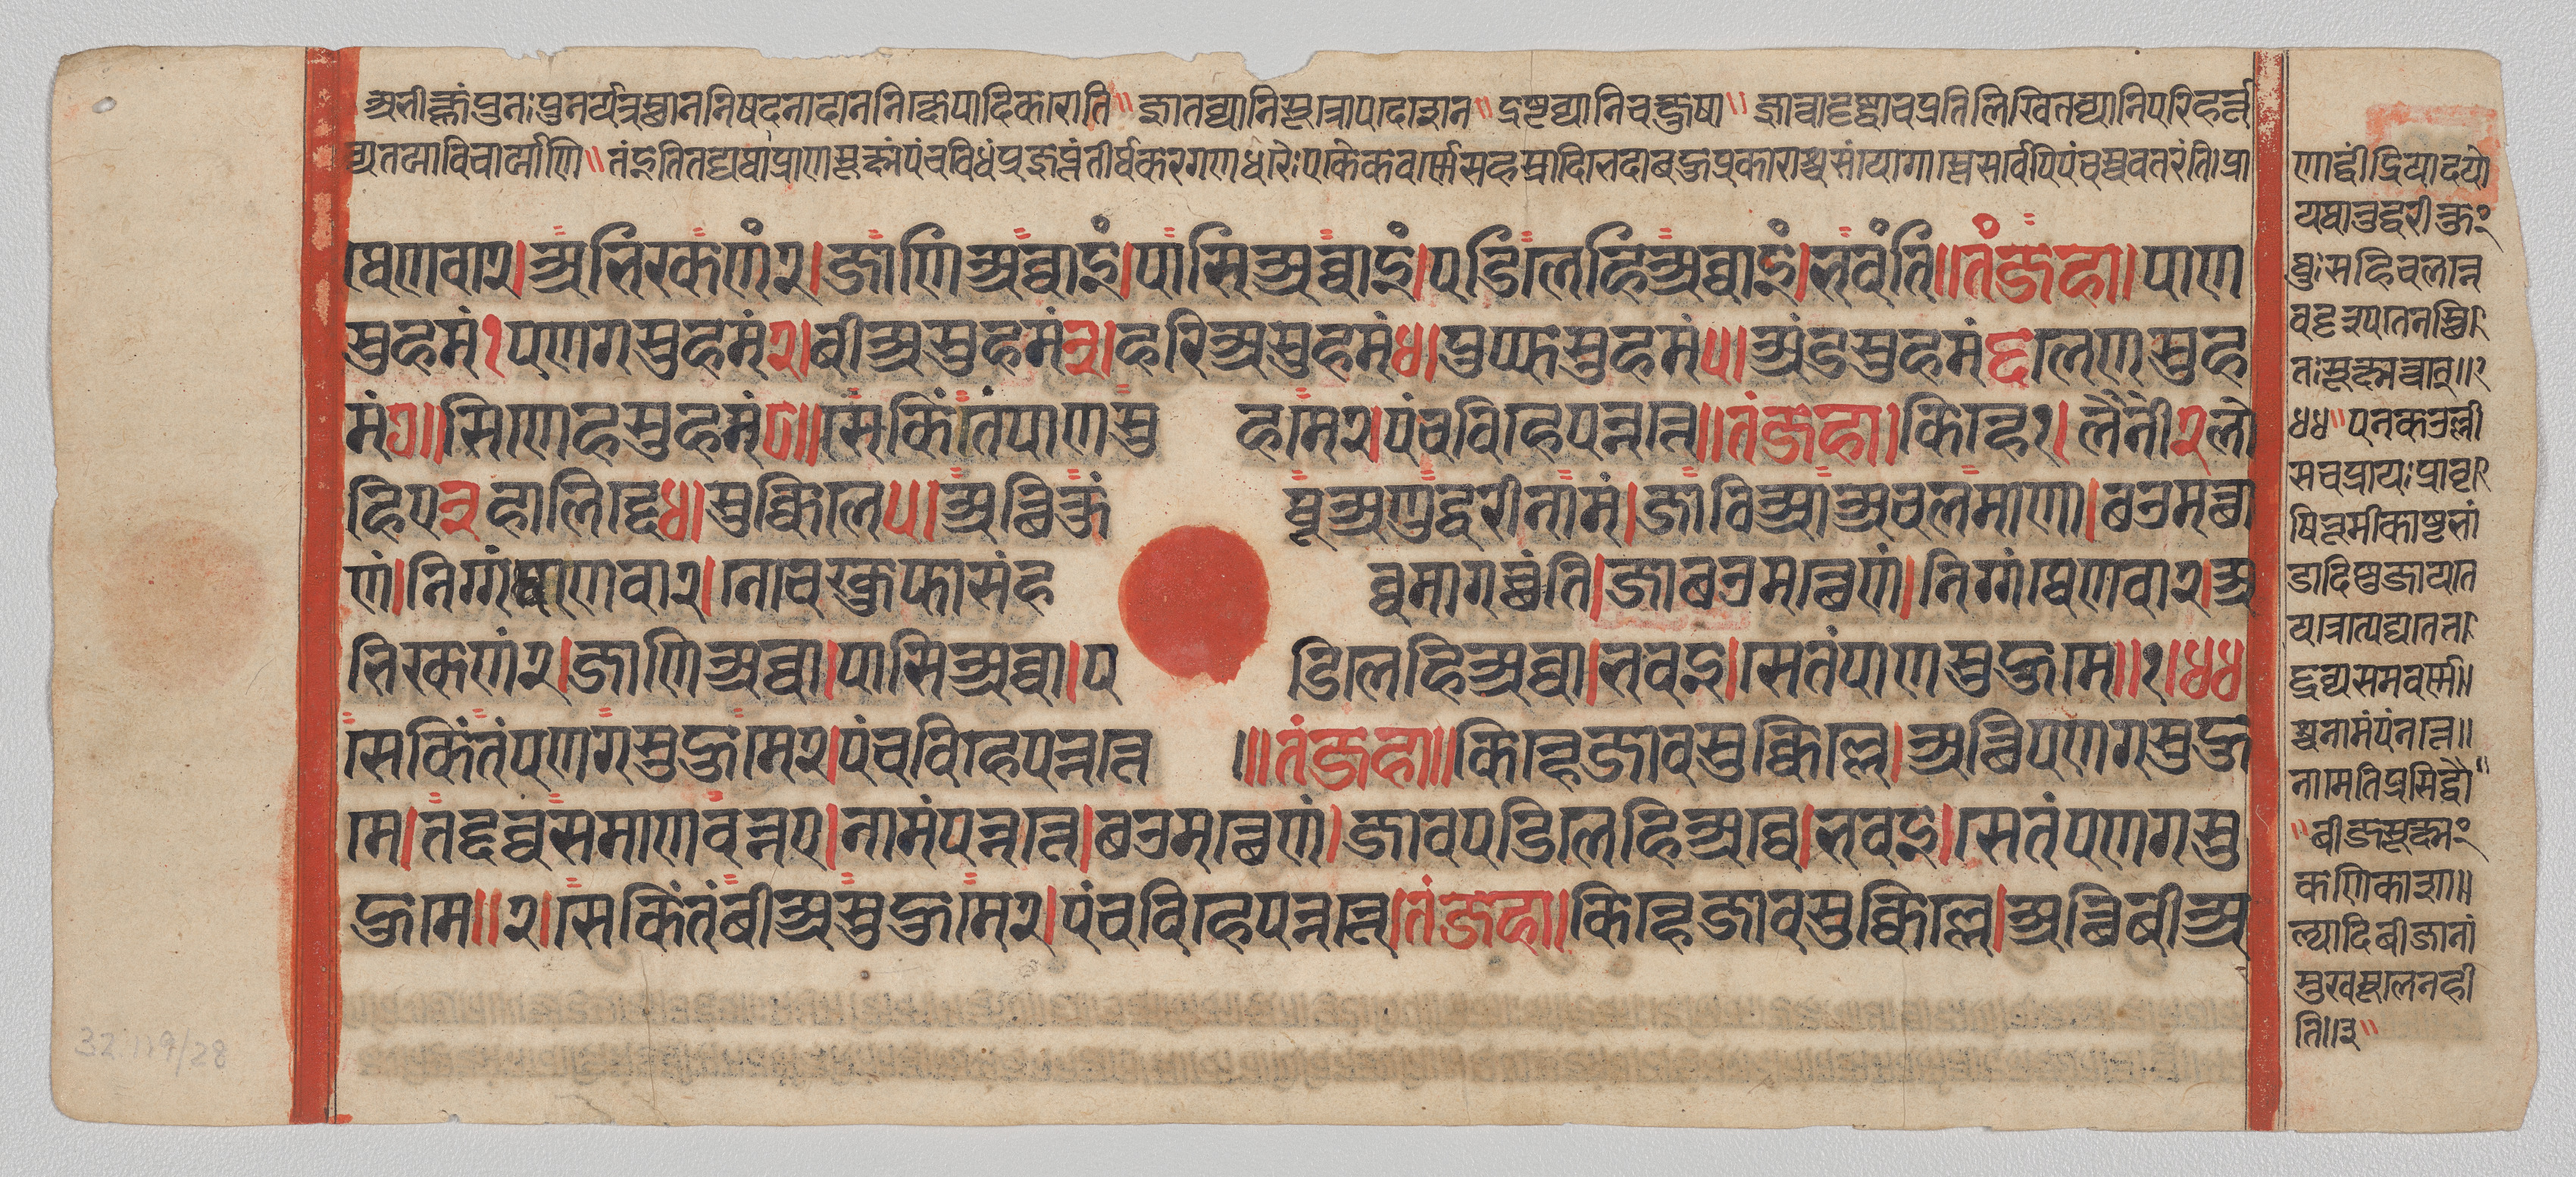 अभीक्ष्णं पुनः पुनर्यत्र स्थाननिषदनादाननिक्षेपादि करोति॥ ज्ञातव्यानि सूत्रोपदेशेन॥ द्रष्टव्यानि चक्षुषा॥ ज्ञात्वा दृष्ट्वा च प्रतिलेखितव्यानि परिहर्त्त
व्यतया विचार्याणि॥ तंइति तद्यथा प्राणसूक्ष्मं पंचविधं प्रज्ञप्तं तीर्थकरगणधरैः एकैकवर्णे सहस्रशो भेदा बहुप्रकाराश्च संयोगास्ते सर्वेपि पंचस्ववतरंति प्रा
थेणवा२।अभिरकणं२।जाणिअव्वाइं।पासिअव्वाइं।पडिलेहिअव्वाइं।भवंति॥तंजहा।पाण
सुहुमं१पणगसुहुमं२।बीअसुहुमं३।हरिअसुहुमं४।पुप्फसुहुमं५।अंडसुहुमं६लेणसुहु
मं७॥सिणेहसुहुमं८॥सेकिंतंपाणसु हुमे२।पंचविहेपन्नत्ते॥तंजहा।किन्हे१।नीले२लो
हिए३हालिद्दे४।सुक्किले५।अत्थिकुं थूअणुद्धरीनामं।जाठिआअचलमाणा।छउमत्था
णं।निग्गंथाणवा२।नोचरकुफासंह व्वमागच्छंति।जाछउमत्थेणं।निग्गंथेणवा२।अ
भिरकणं२।जाणिअव्वा।पासिअव्वा।प डिलेहिअव्वा।भवइ।सेतंपाणसुहुमे॥१।४४
सेकिंतंपणगसुहुमे२।पंचविहेपन्नत्ते ॥तंजहा॥किन्हेजावसुक्किल्ले।अत्थिपणगसुहु
मे।तद्दव्वसमाणवन्नए।नामंपन्नत्ते।छउमत्थेणं।जावपडिलेहिअव्वे।भवइ।सेतंपणगसु
हुमे॥२।सेकिंतंबीअसुहुमे२।पंचविहेपन्नत्ते।तंजहा।किन्हेजावसुक्किल्ले।अत्थिबीअ
णो द्वींद्रियादयो
यथानुद्धरी कुं
थुः स हि चलन्ने
व दृश्यते न स्थि
तः सूक्ष्मत्वात्॥१
४४॥ पनक उल्ली
स च प्रायः प्रावृ
षि भूमीकाष्ठभां
डादिषु जायते
यत्रोत्पद्यते त
द्द्रव्यसमवर्ण
श्च नामं पंनत्ते॥
नामेति प्रसिद्धौ॥
॥बीजसूक्ष्मं
कणिका शा॥
ल्यादिबीजानां
मुखमूले नही
ति॥३॥
32.119/28